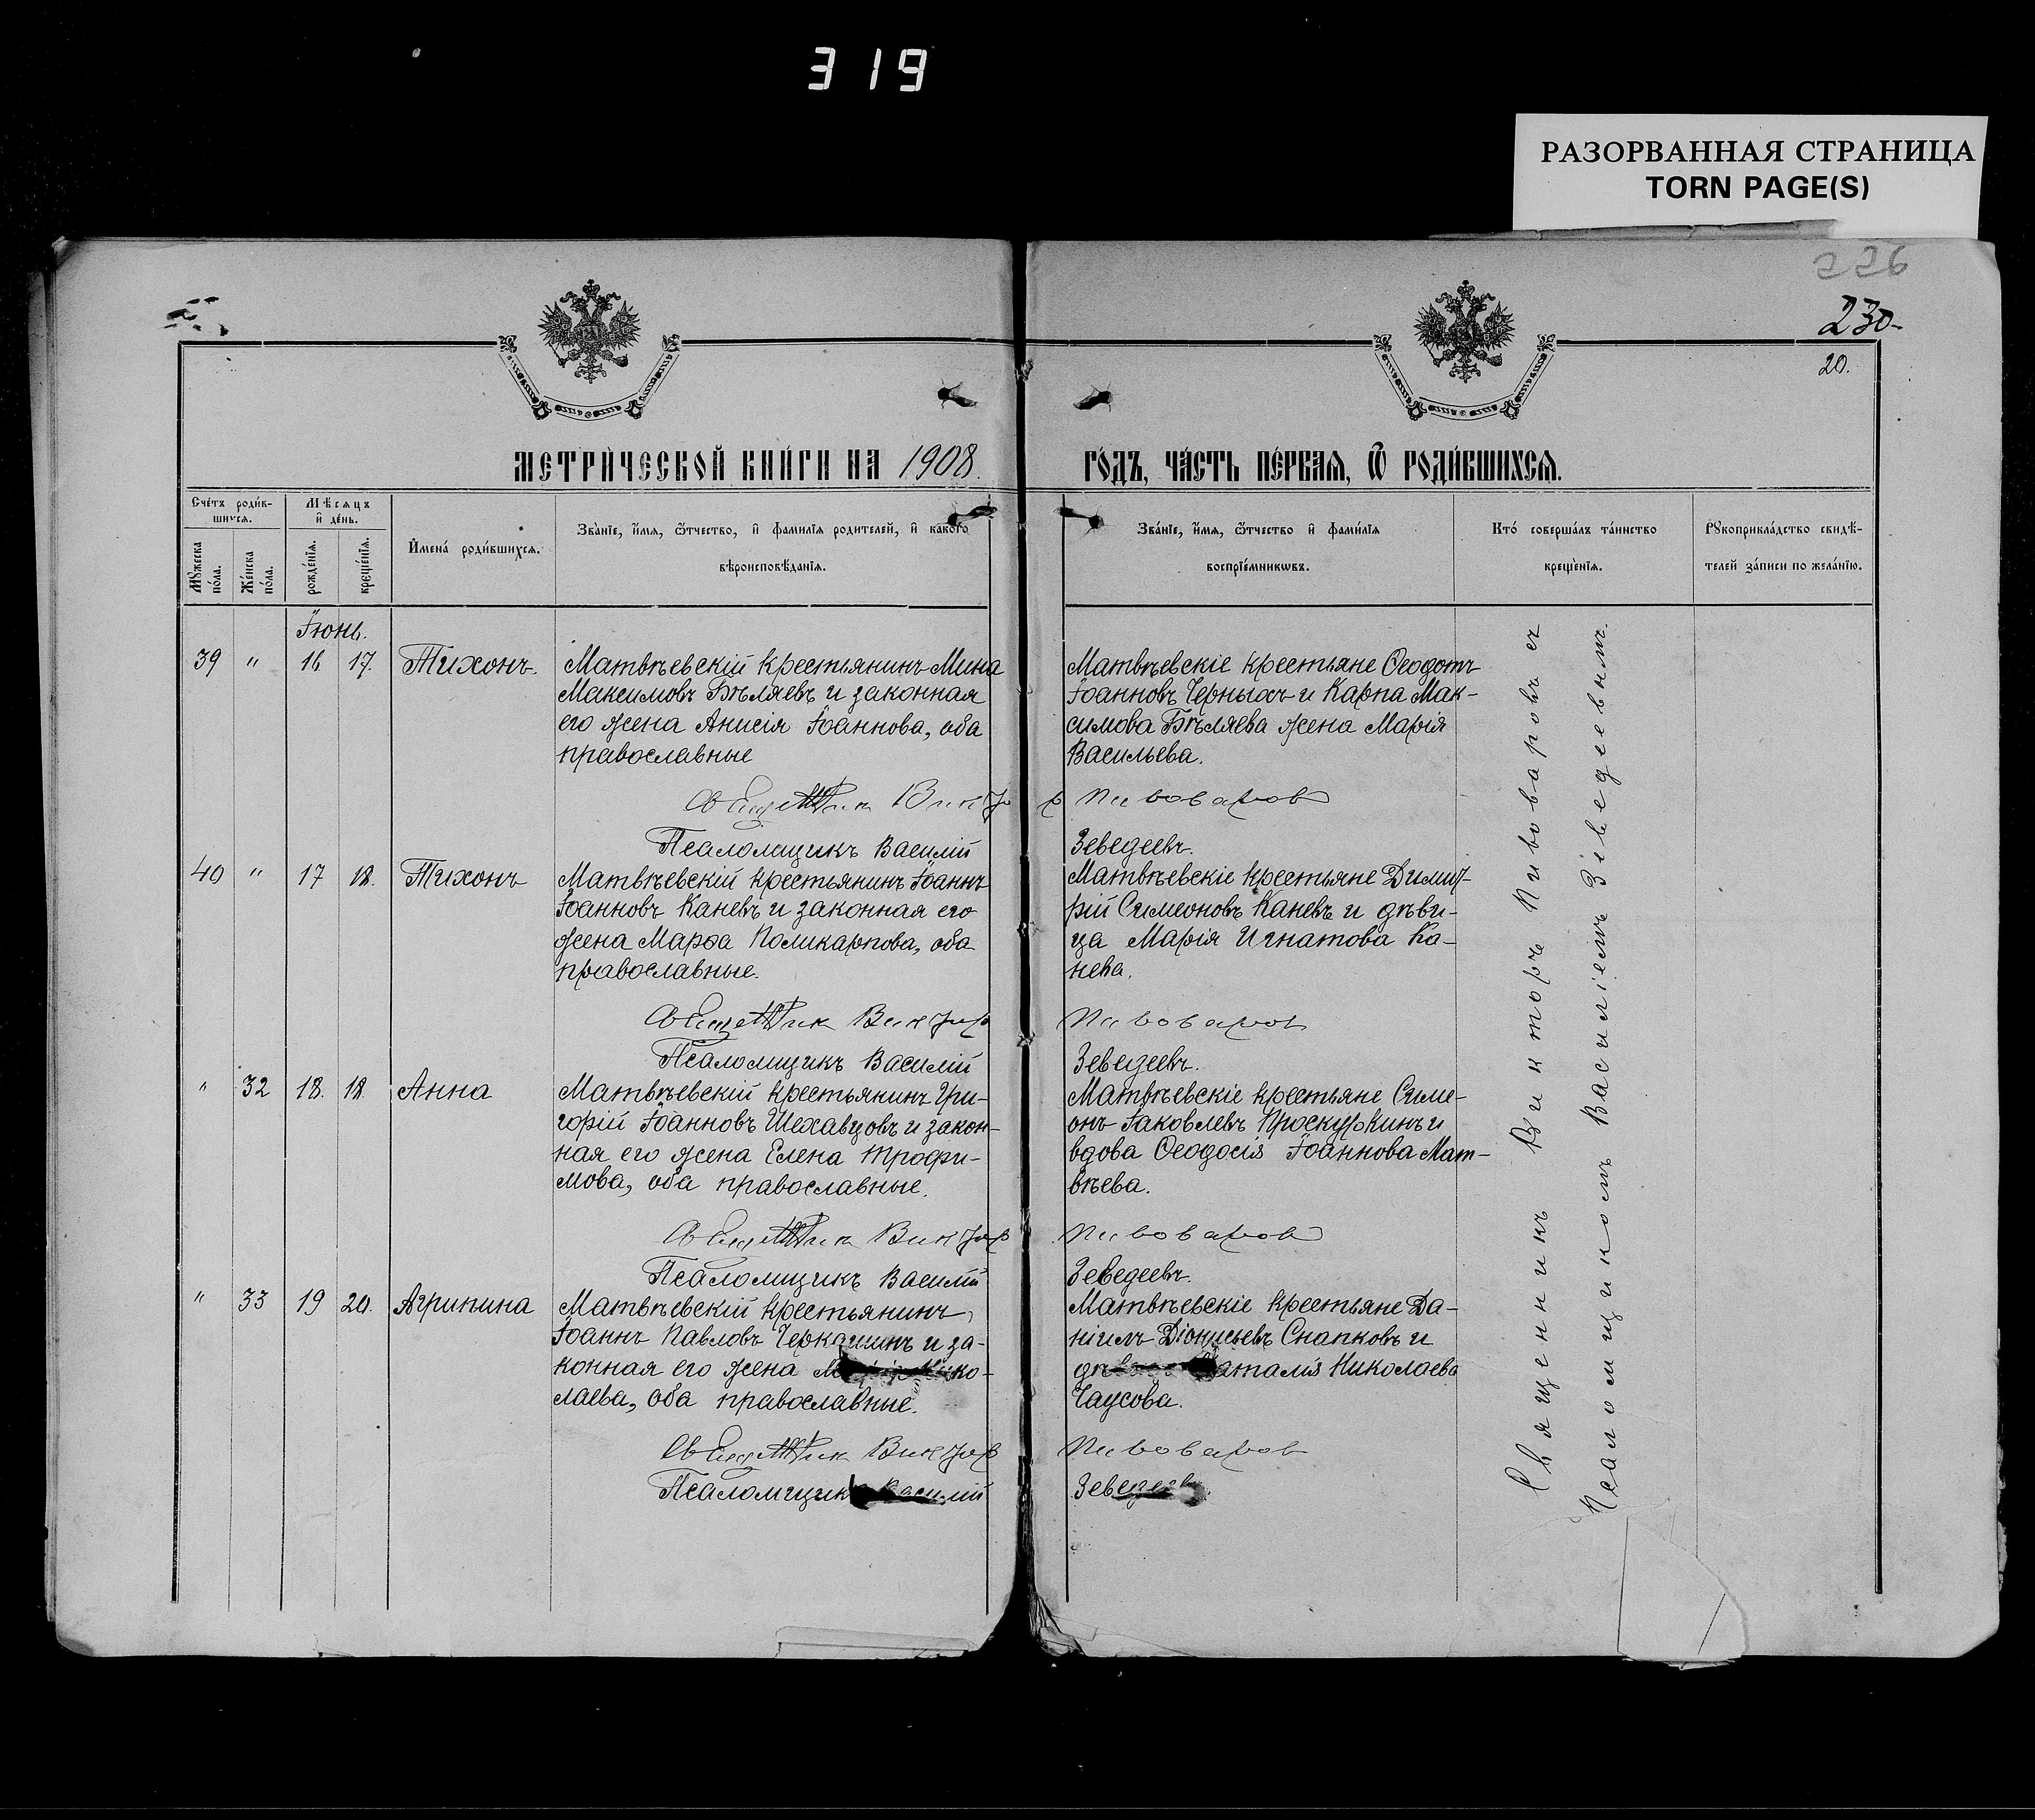 319
РАЗОРВАННАЯ СТРАНИЦА
TORN PAGE(S)
226
230
20.
МЕТРИ́ЧЕСКОЙ КНИ́ГИ НА 1908
ГО́ДЪ, ЧА́СТЬ ПЕ́РВАЯ, Ѿ РОДИ́ВШИХСЯ.
Сче́тъ роди́в-
шихся.
Мѣсяцъ
и҆ де́нь.
Мꙋжеска по́ла.
Же́нска по́ла.
рожде́нїя.
креще́нїя.
И҆мена́ роди́вшихся.
Зва́нїе, и҆́мя, ѻ҆́тчество, и҆ фами́лїя родителей, и҆ како́го
вѣроисповѣ́данїя.
Зва́нїе, и҆́мя, ѻ҆́тчество и҆ фами́лїя
воспрїе́мникѡвъ.
Кто́ соверша́лъ та́инство
креще́нїя.
Рꙋкоприкла́дство свидѣ́-
телей за́писи по жела́нїю.
Іюнь.
39 " 16 17. Тихонъ.
Матвѣевскій крестьянинъ Мина
Максимовъ Бѣляевъ и законная
его жена Анисія Іоаннова, оба
православные
Матвѣевскіе крестьяне Ѳеодотъ
Іоанновъ Черныхъ и Карпа Мак-
симова Бѣляева жена Марія
Васильева.
Священник Виктор Пивоваров
Псаломщикъ Василій Зеведеевъ.
40 " 17 18. Тихонъ
Матвѣевскій крестьянинъ Іоаннъ
Іоанновъ Каневъ и законная его
жена Марѳа Поликарпова, оба
православные.
Матвѣевскіе крестьяне Димит-
рій Симеоновъ Каневъ и дѣви-
ца Марія Игнатова Ка-
нева.
Священник Виктор Пивоваров
Псаломщикъ Василій Зеведеевъ.
" 32 18. 18. Анна
Матвѣевскій крестьянинъ Гри-
горій Іоанновъ Шехавцовъ и закон-
ная его жена Елена Трофи-
мова, оба православные.
Матвѣевскіе крестьяне Симе-
онъ Іаковлевъ Проскуркинъ и
вдова Ѳеодосія Іоаннова Мат-
вѣева.
Священник Виктор Пивоваров
Псаломщикъ Василій Зеведеевъ.
" 33 19 20. Агрипина
Матвѣевскій крестьянинъ
Іоаннъ Павловъ Черкашинъ и за-
конная его жена Марія Нико-
лаева, оба православные.
Матвѣевскіе крестьяне Да-
ніилъ Діонисьевъ Снапковъ и
Наталія Николаева
Чаусова.
Священник Виктор Пивоваров
Псаломщикъ Василій Зеведеевъ
Священникъ Викторъ Пивоваровъ съ
Псаломщикомъ Василіемъ Зеведеевымъ.